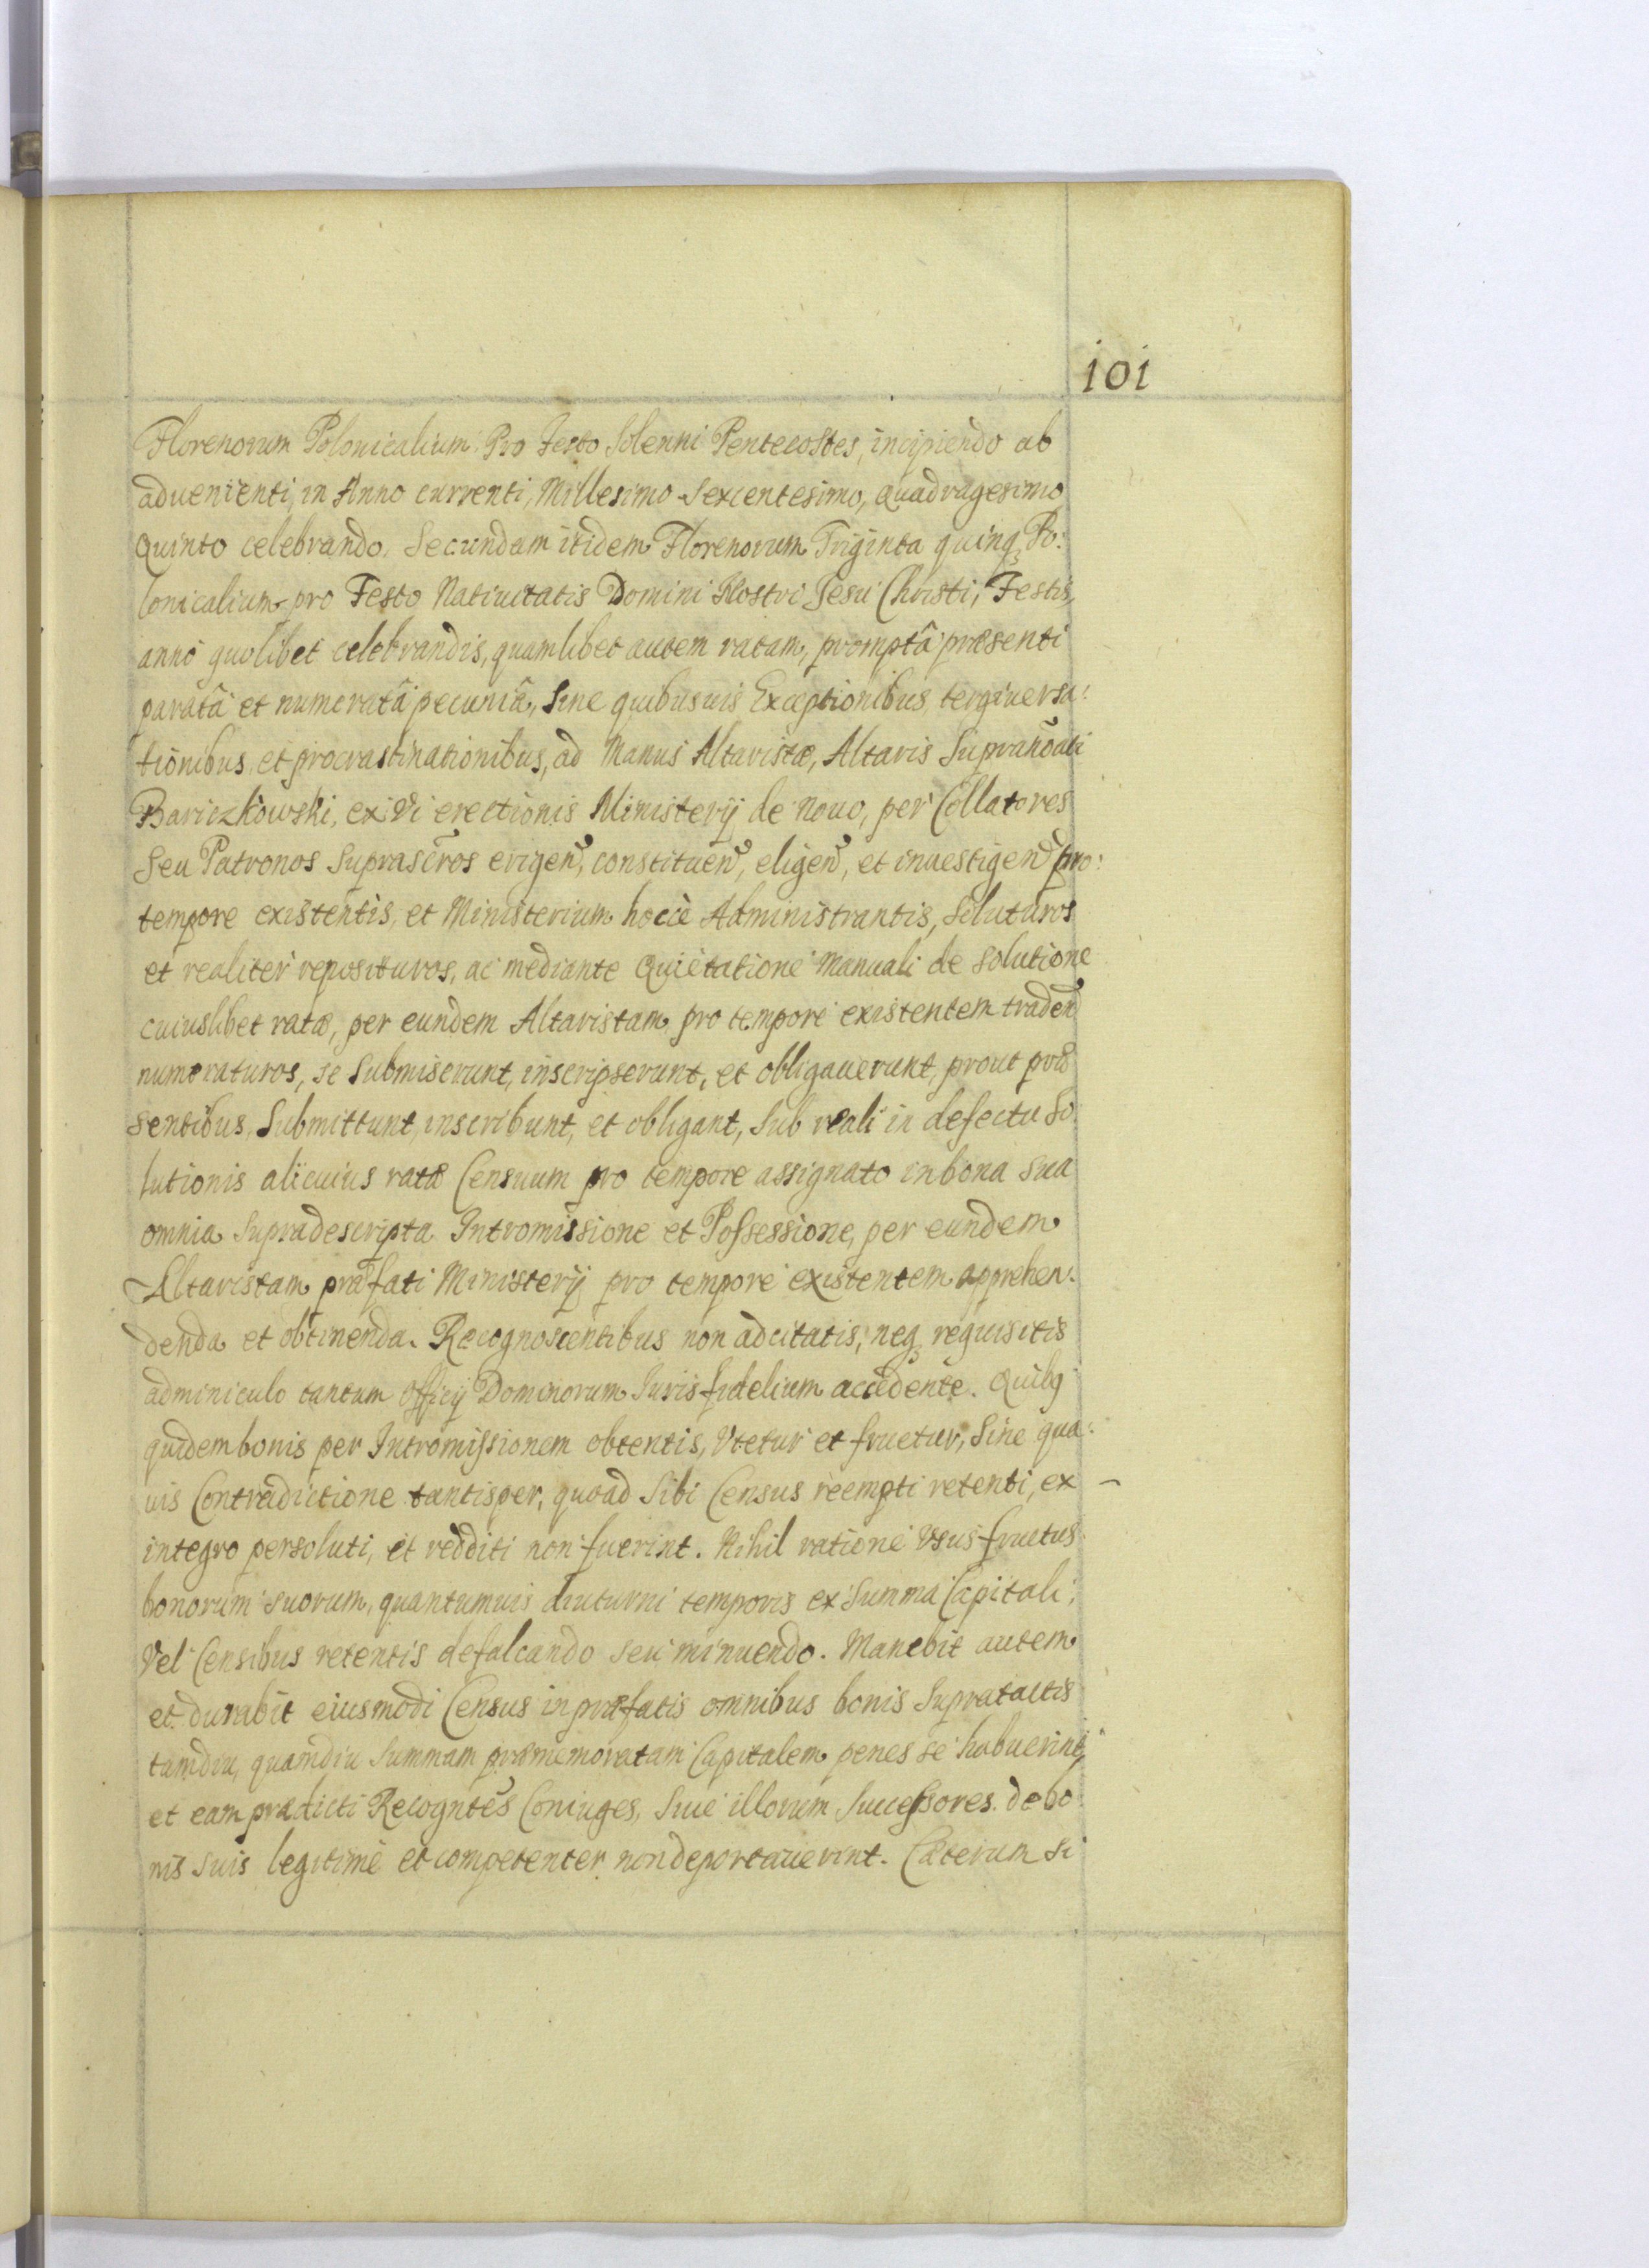 101
Florenorum Polonicalium. Pro Festo Solenni Pentecostes, incipiendo ab
aduenienti, in Anno currenti, Millesimo Sexcentesimo, Quadragesimo
Quinto celebrando. Secundam itidem Florenorum Triginta quinq Po:
lonicalium pro Festo Natiuitatis Domini Nostri Jesu Christi, Festis,
anno quolibet celebrandis, quamlibet autem ratam, promptâ præsenti
paratâ et numeratâ pecuniâ, sine quibusuis Exceptionibus, tergiuersa:
tionibus, et procrastinationibus, ad Manus Altaristæ, Altaris Supranoãti
Bariczkowski, ex Vi erectionis Ministerij de Nouo, per Collatores
Seu Patronos Suprascr̃os erigen̄, constituen̄, eligen̄, et inuestigen̄ pro:
tempore existentis, et Ministerium hocce Administrantis, Soluturos
et realiter reposituros, ac mediante Quietatione Manuali de Solutione
cuiuslibet ratæ, per eundem Altaristam pro tempore existentem traden̄
numeraturos, se Submiserunt, inscripserunt, et obligauerunt, prout præ
sentibus, Submittunt, inscribunt, et obligant, Sub reali in defectu So
lutionis alicuius ratæ Censuum pro tempore assignato in bona sua
omnia Supradescripta Intromissione et Possessione, per eundem
Altaristam præfati Ministerij pro tempore existentem apprehen:
denda et obtinenda. Recognoscentibus non adcitatis, neq requisitis
adminiculo tantum Officij Dominorum Juris fidelium accedente. Quibq
quidem bonis per Intromissionem obtentis, Vtetur et fruetur, Sine qua:
uis Contradictione tantisper, quoad Sibi Census reempti retenti, ex
integro persoluti, et redditi non fuerint. Nihil ratione Vsus fructus
bonorum suorum, quantumuis diuturni temporis ex Summa Capitali,
Vel Censibus retentis defalcando seu minuendo. Manebit autem
et durabit eiusmodi Census in præfatis omnibus bonis Supratactis
tamdiu, quamdiu Summam præmemoratam Capitalem penes se habuerint,
et eam prædicti Recogntẽs Coniuges, Siue illorum Successores de bo
nis Suis legitimè et competenter non deportauerint. Cæterum si